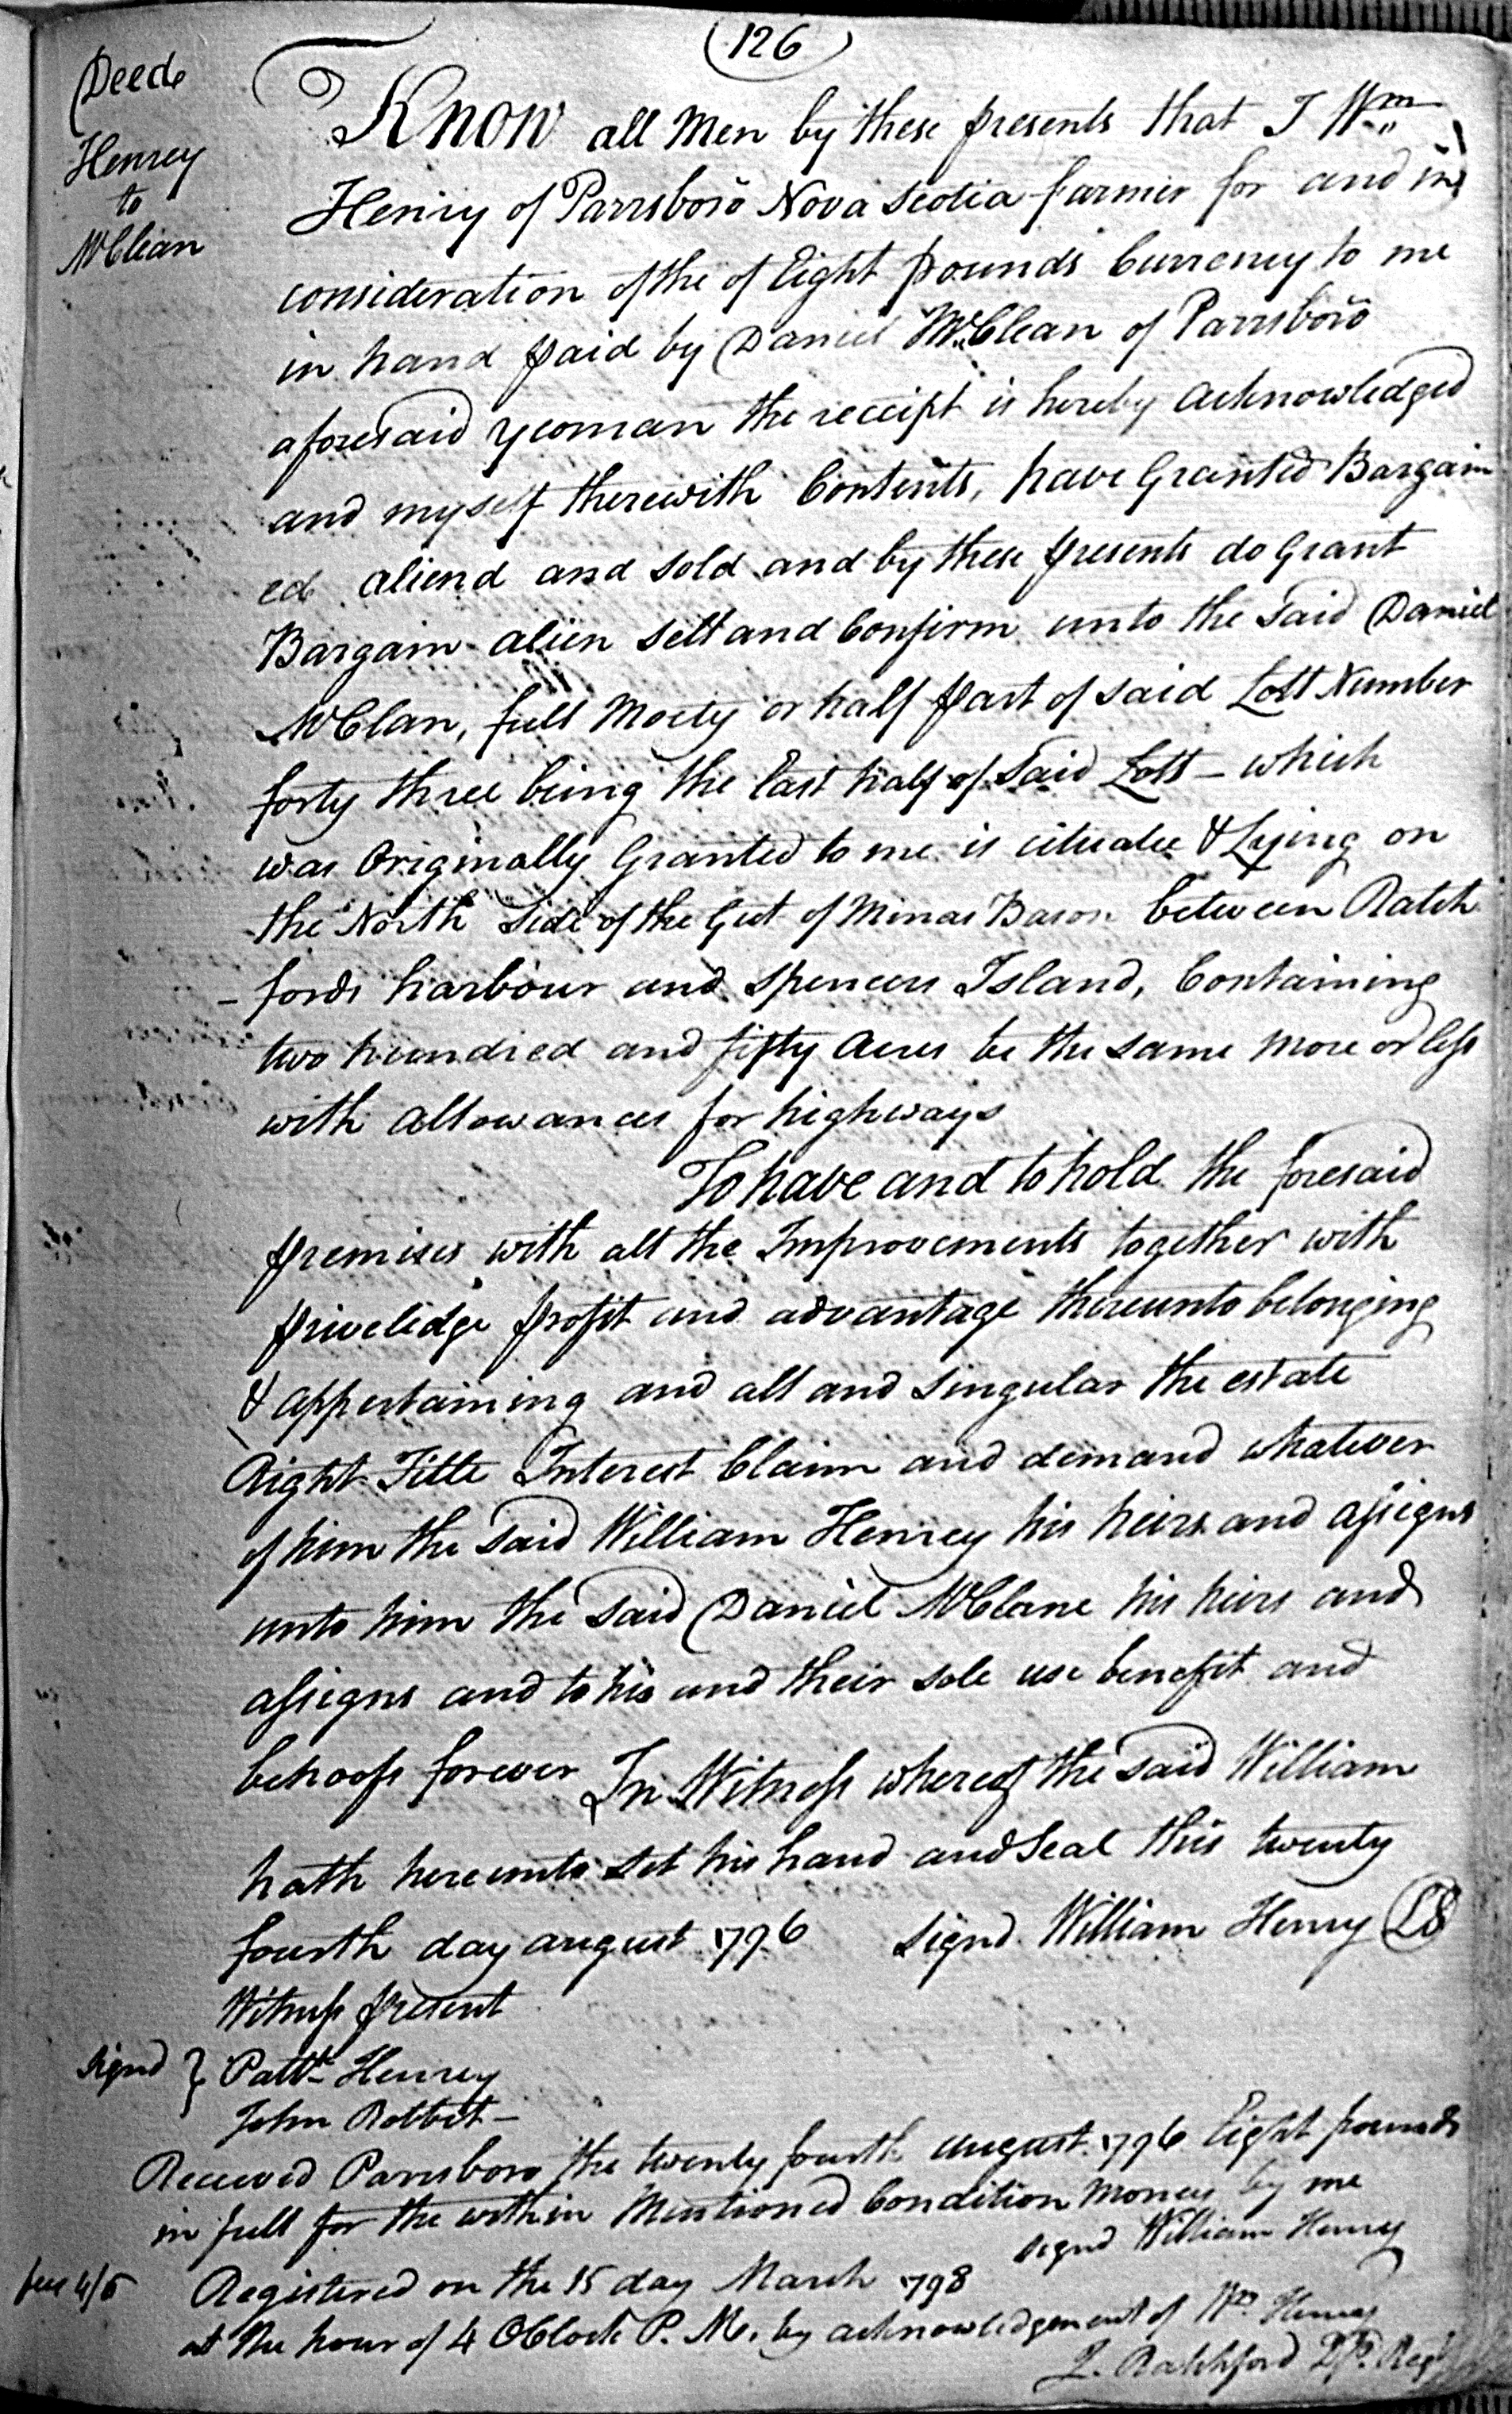 (126)
Deed
Henrey
to
McClean
Know all Men by these presents that I Wm
Henry of Parrsboro Nova Scotia farmer for and in
consideration of the of Eight pounds Currency to me
in hand paid by Daniel McClean of Parrsboro
aforesaid yeoman the receipt is hereby acknowledged
and myself therewith Contents, have Granted Bargain
ed aliend and sold and by these presents do Grant
Bargain alien sell and Confirm unto the said Daniel
McClan, full Moety or half part of said Lott Number
forty three being the East half of said Lott - which
was Originally Granted to me is cituate & Lying on
the North side of the Gut of Minas Bason between Ratch
- fords harbour and Spencers Island, Containing
two hundred and fifty acres be the same more or less
with allowances for highways
To have and to hold the foresaid
premises with all the Improvements together with
priveledge profit and advantage thereunto belonging
& appertaining and all and singular the estate
Right Title Interest Claim and demand whatever
of him the said William Henrey his heirs and assigns
unto him the said Daniel McClane his heirs and
assigns and to his and their sole use benefit and
behoofs forever In Witness whereof the said William
hath hereunto set his hand and Seal this twenty
fourth day august 1796 signd William Henry LS
Witness present
signd } Patt Henrey
John Robbet -
Received Parrsboro the twenty fourth august 1796 Eight pounds
in full for the within Mentioned Condition money by me
signd William Henry
fees 4/6 Registered on the 15 day March 1798
at the hour of 4 OClock P. M. by acknowledgement of Wm Henrey
J. Ratchford Dp. Regr